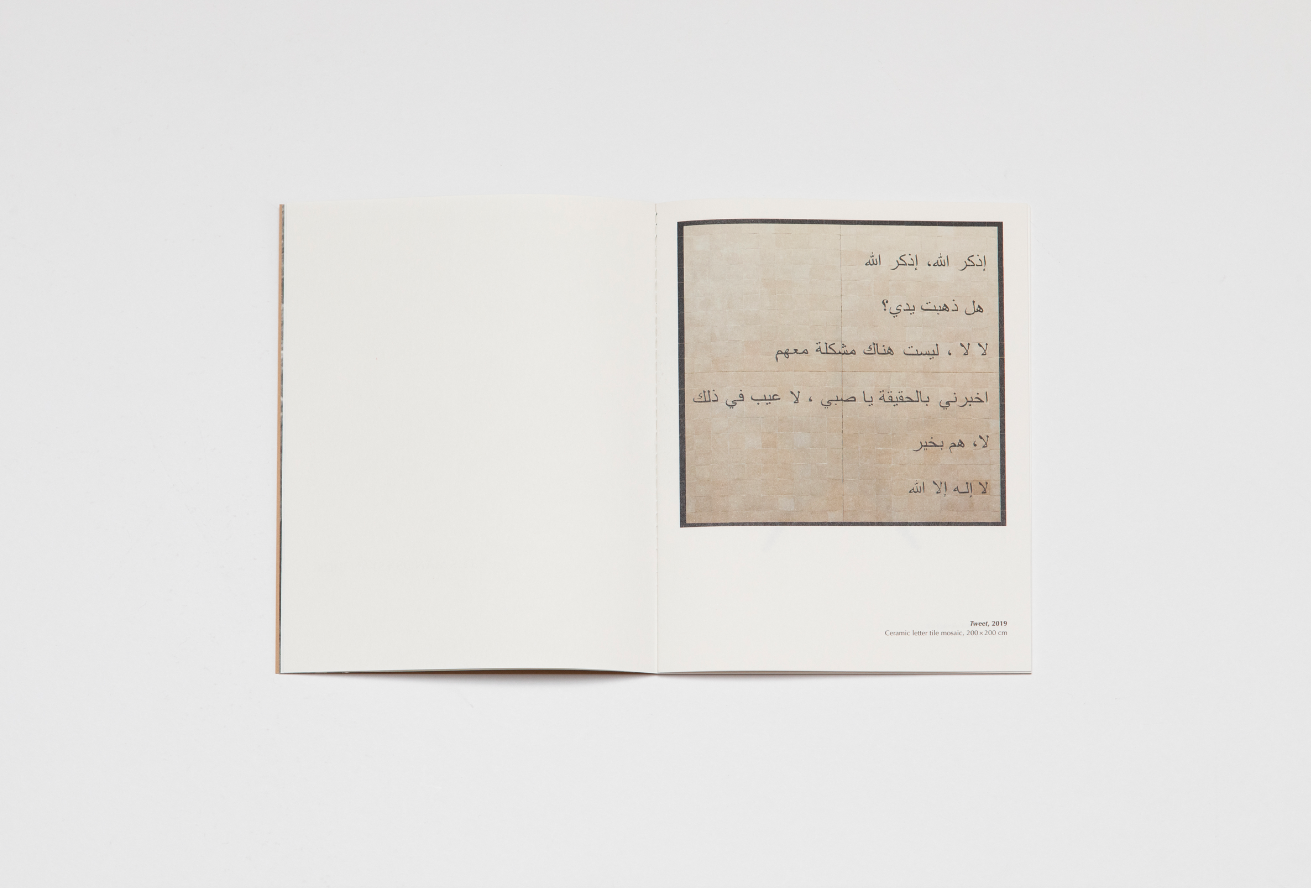 إذكر الله، إذكر الله
هل ذهبت يدي؟
لا لا ، ليست هناك مشكلة معهم
اخبرني بالحقيقة يا صبي ، لا عيب في ذلك
لا، هم بخير
لا إله إلا الله
Tweet, 2019
Ceramic letter tile mosaic, 200 x 200 cm